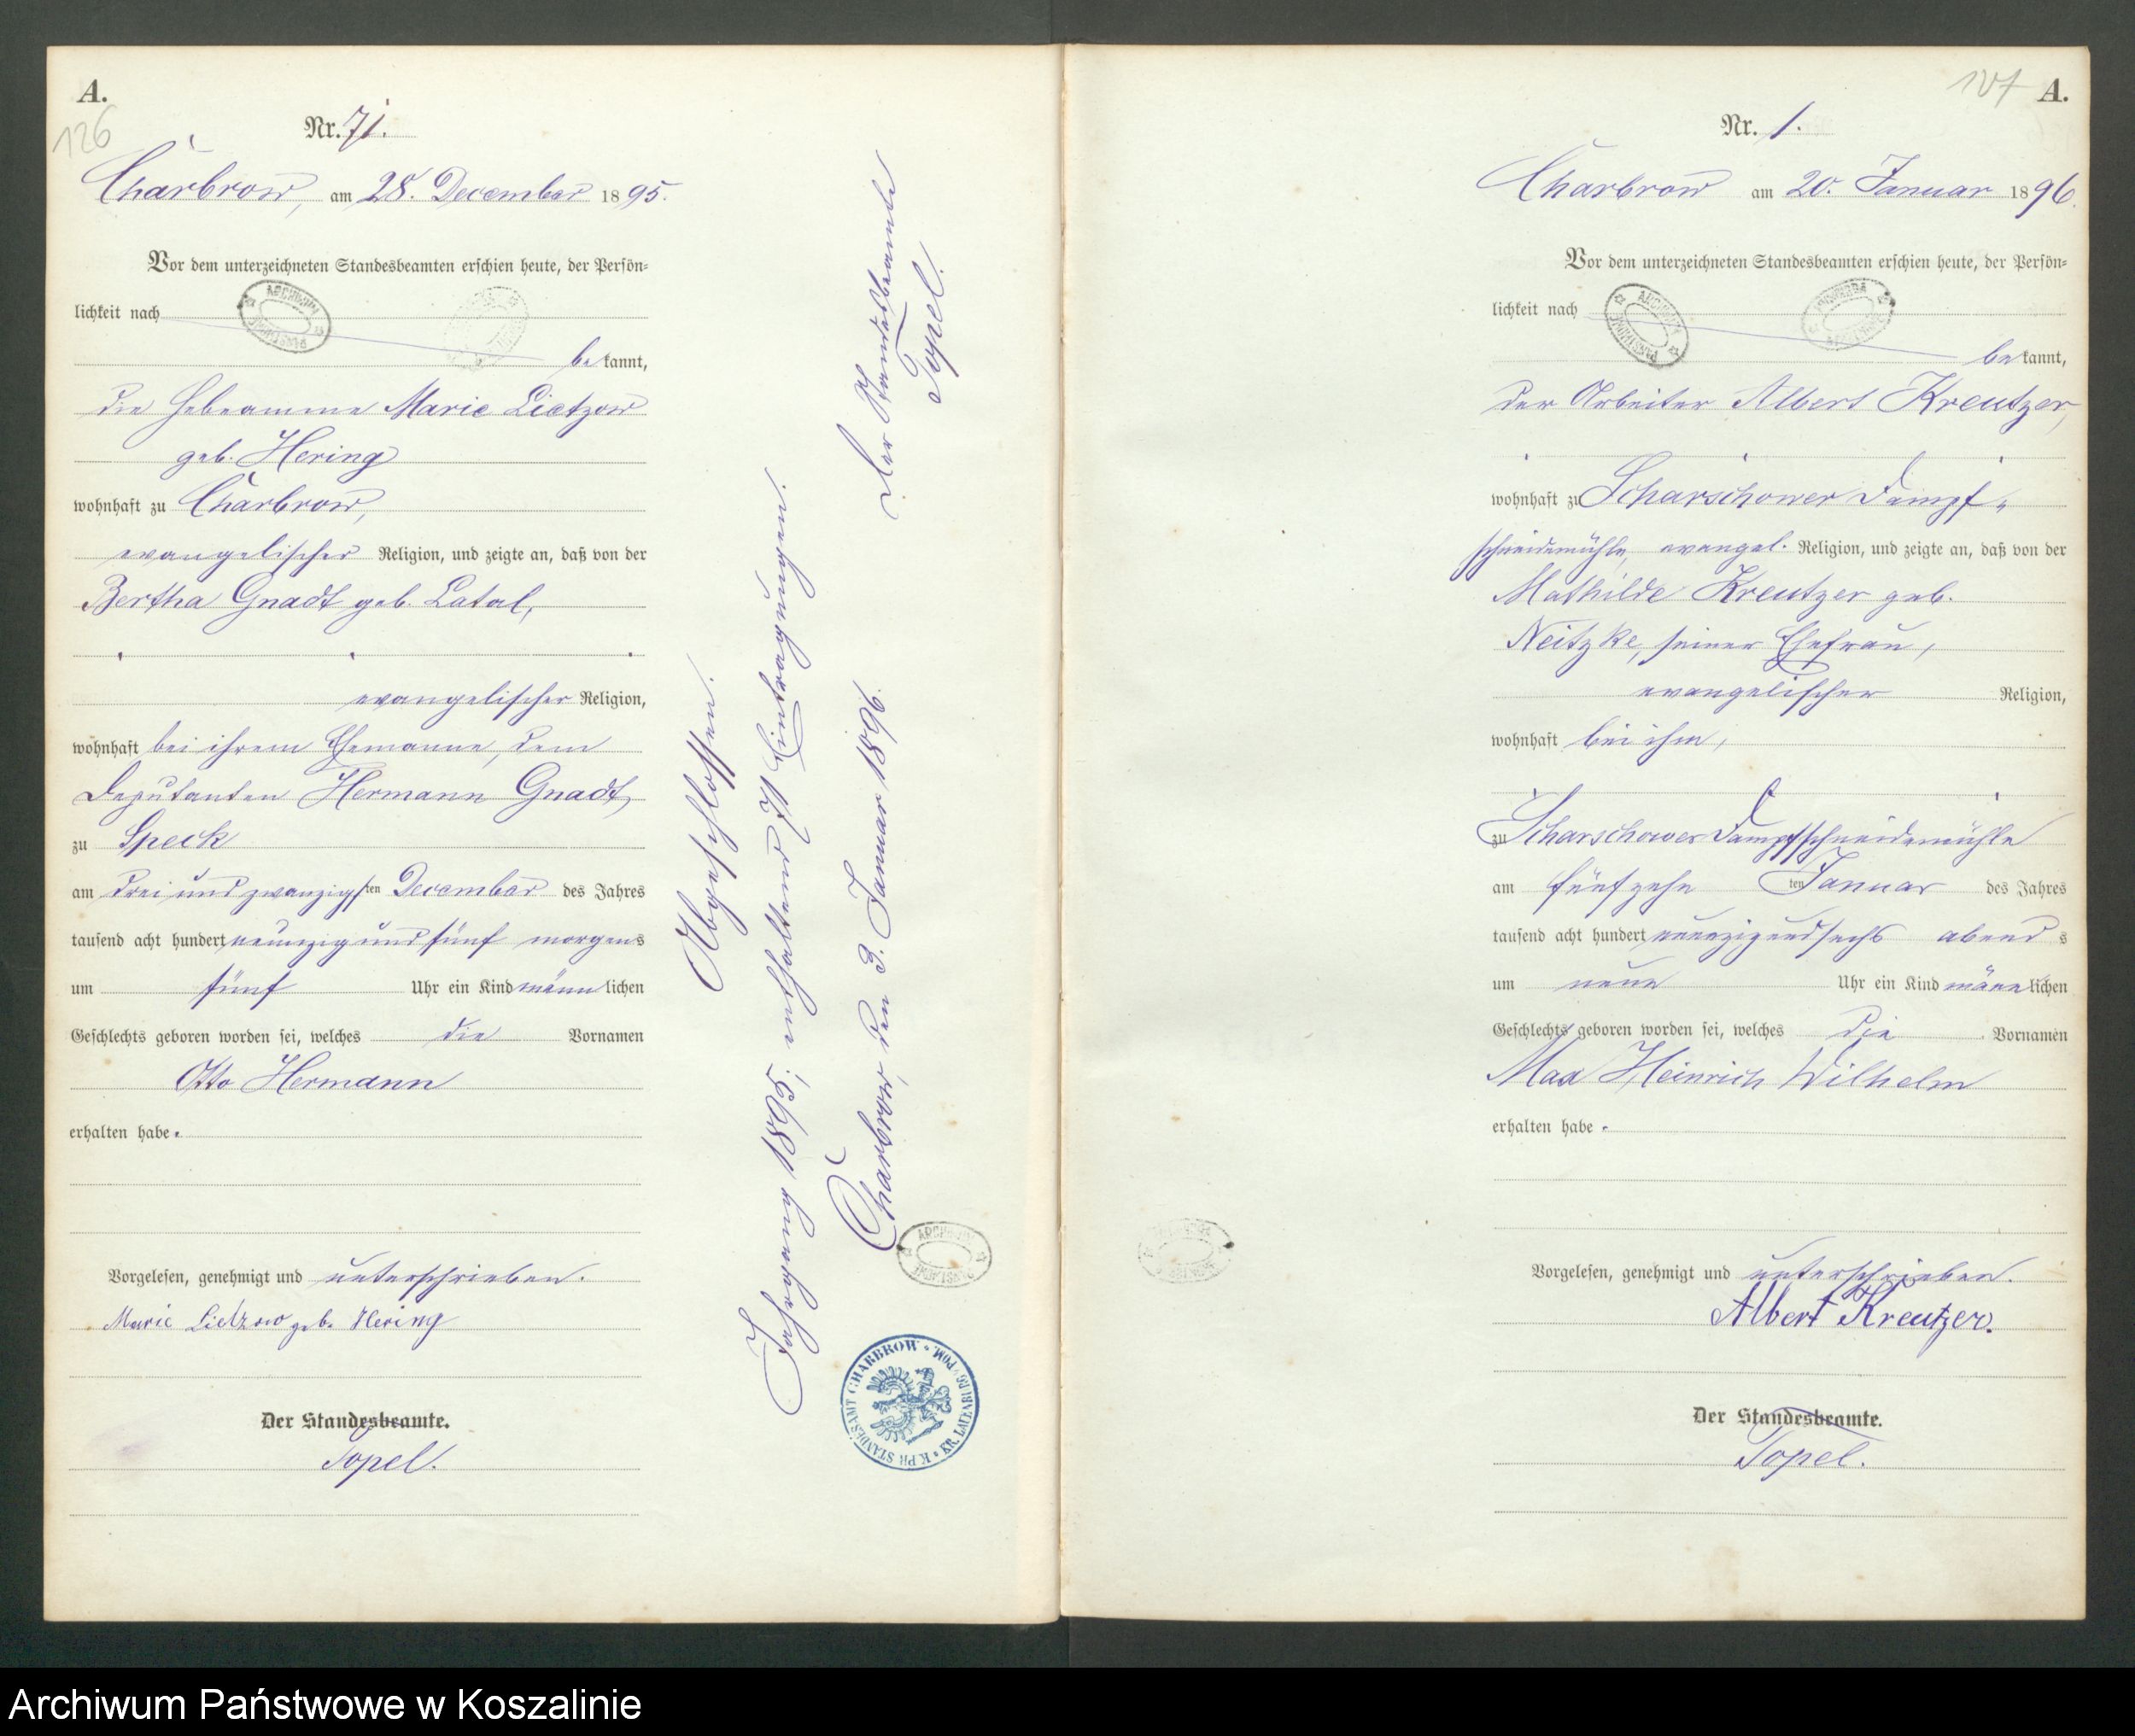 A.
126
Nr. 71.
Charbrow, am 28. December 1895.
Vor dem unterzeichneten Standesbeamten erschien heute, der Persön-
lichkeit nach
bekannt,
die Hebeamme Marie Lietzow
geb. Hering
wohnhaft zu Charbrow,
evangelischer Religion, und zeigte an, daß von der
Bertha Gnadt geb. Latal,
evangelischer Religion,
wohnhaft bei ihrem Ehemanne, dem
Deputanten Hermann Gnadt,
zu Speck
am drei und zwanzigsten December des Jahres
tausend acht hundert neunzig und fünf morgens
um fünf Uhr ein Kind männlichen
Geschlechts geboren worden sei, welches die Vornamen
Otto Hermann
erhalten habe.
Vorgelesen, genehmigt und unterschrieben.
Marie Lietzow geb. Hering
Der Standesbeamte.
Topel.
Abgeschlossen.
Jahrgang 1895, enthaltend 71 Eintragungen.
Charbrow, den 3. Januar 1896.
Der Standesbeamte
Topel.
K. PR. STANDESAMT CHARBROW * KR. LAUENBURG POM.
107 A.
Nr. 1.
Charbrow am 20. Januar 1896.
Vor dem unterzeichneten Standesbeamten erschien heute, der Persön-
lichkeit nach
bekannt,
der Arbeiter Albert Kreutzer,
wohnhaft zu Scharschower Dampf-
schneidemühle, evangel. Religion, und zeigte an, daß von der
Mathilde Kreutzer geb.
Neitzke, seiner Ehefrau,
evangelischer Religion,
wohnhaft bei ihm,
zu Scharschower Dampfschneidemühle
am fünfzehnten Januar des Jahres
tausend acht hundert neunzigundsechs abends
um neun Uhr ein Kind männlichen
Geschlechts geboren worden sei, welches die Vornamen
Max Heinrich Wilhelm
erhalten habe.
Vorgelesen, genehmigt und unterschrieben.
Albert Kreutzer.
Der Standesbeamte.
Topel.
Archiwum Państwowe w Koszalinie